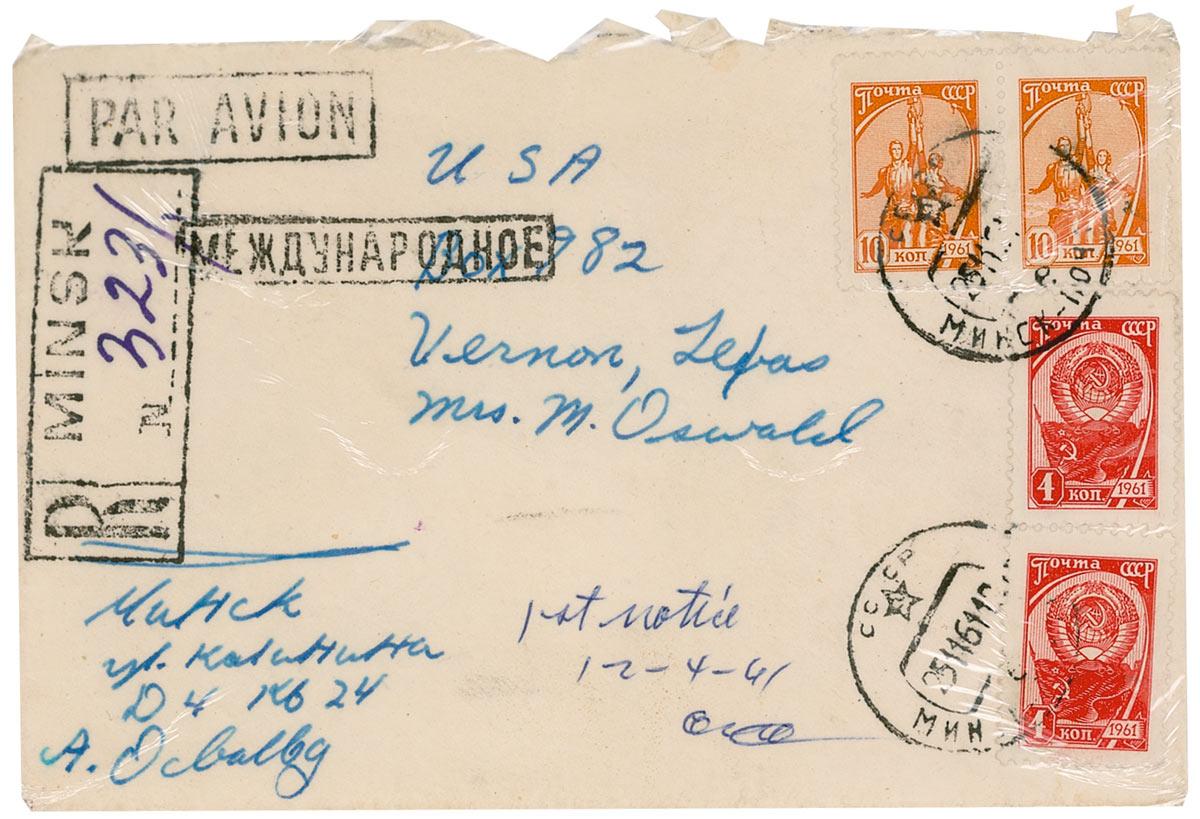 PAR AVION
MINSK
3231
N
R
МЕЖДУНАРОДНОЕ
USA
Box 982
Vernon, Texas
Mrs. M. Oswald
Почта СССР
10 коп. 1961
Почта СССР
10 коп. 1961
МИНСК-
Почта СССР
4 коп. 1961
Почта СССР
4 коп. 1961
СССР
МИН
Минск
ул. Калинина
Д 4 Кв 24
А. Освальд
1st notice
12-4-61